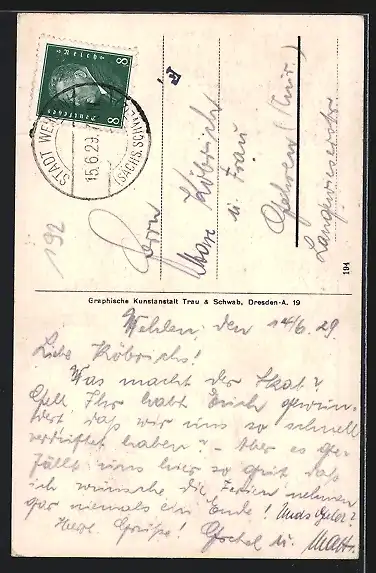 8 8
Deutsches Reich
STADT WEHLEN
15.6.29.
(SÄCHS. SCHWEIZ)
192
Herrn
Max Köbrich
u. Frau
Gehren (Thür.)
Langewiesenerstr.
194
Graphische Kunstanstalt Trau & Schwab, Dresden-A. 19
Wehlen, den 14/6. 29.
Liebe Köbrichs!
Was macht der Skat?
Gell Ihr habt Euch gewun-
dert, daß wir uns so schnell
verdüftet haben? - Aber es ge-
fällt uns hier so gut, daß
ich wünsche die Ferien nehmen
gar niemals ein Ende!
Herzl. Grüße! u.